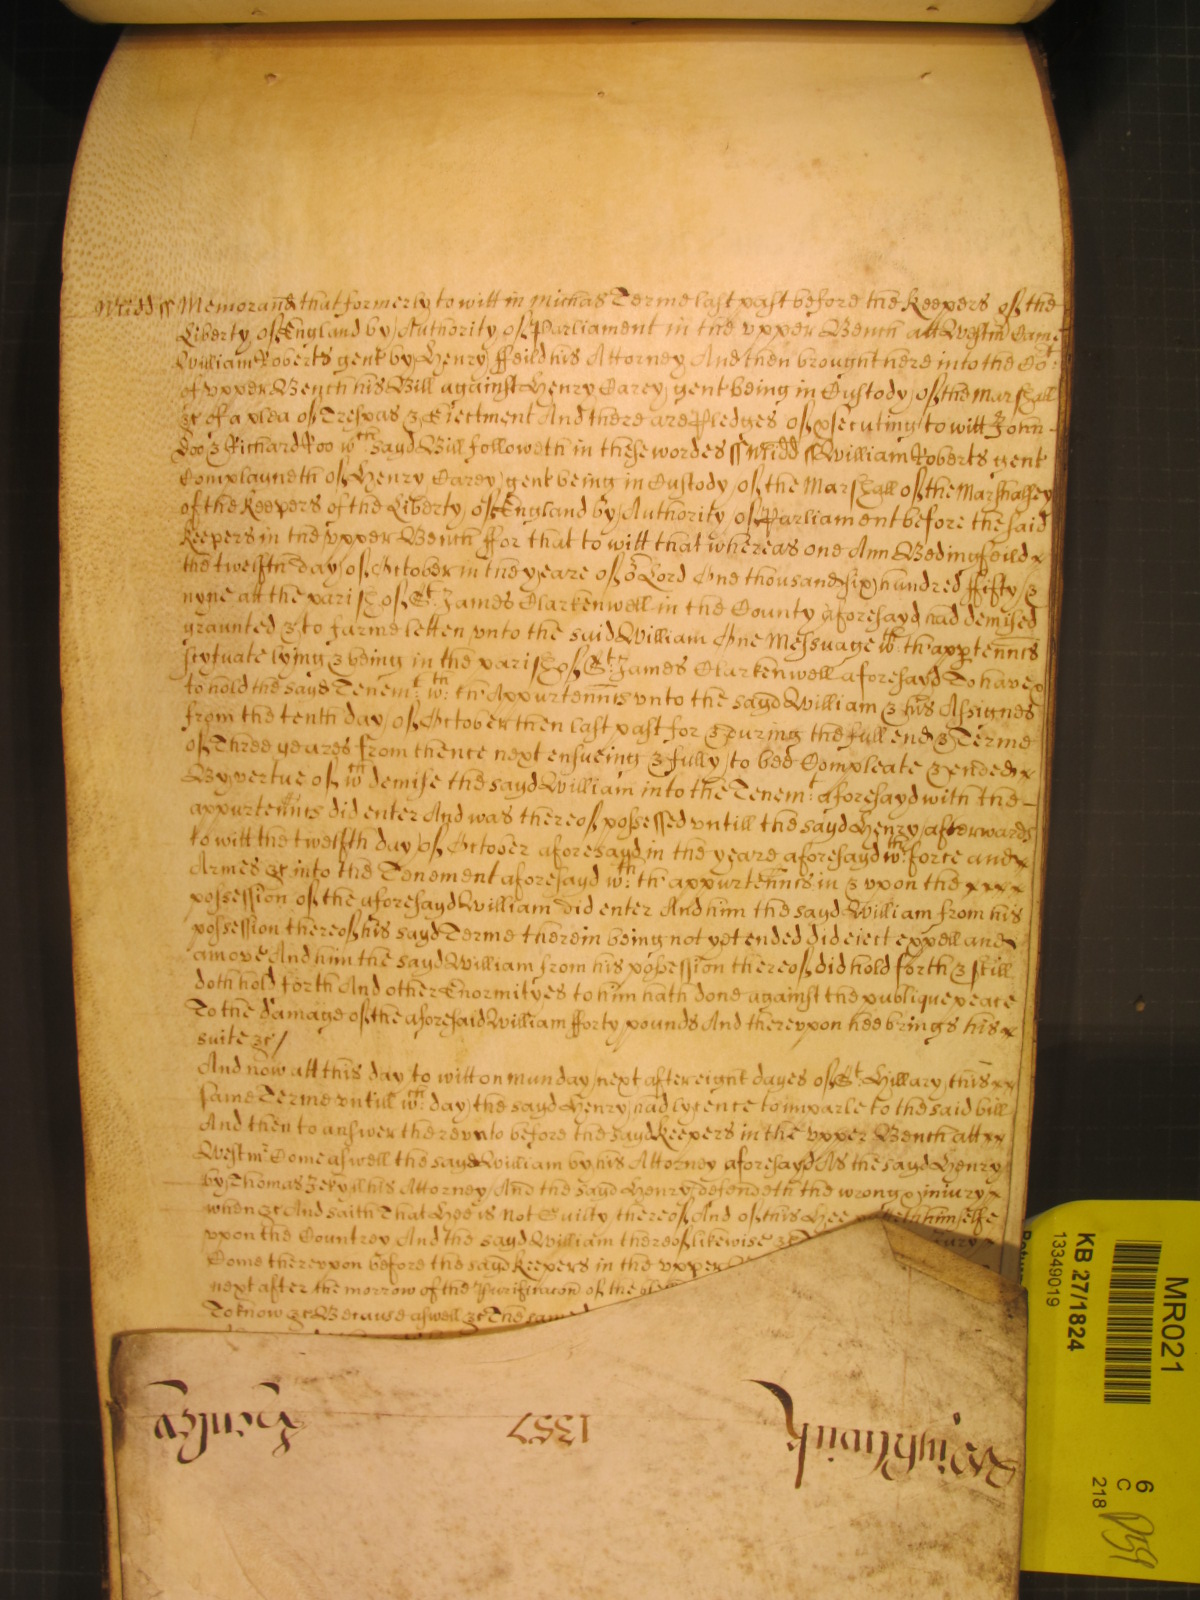 Midd ss Memorand that formerly to witt in Michas Terme last past before the Keepers of the
Liberty of England by Authority of Parliament in the vpper Bench att Westm Came
William Roberts gent by Henry ffeild his Attorney And then brought here into the Cot
of vpper Bench his Bill against Henry Carey gent being in Custody of the Marshall
&c of a plea of Trespas & Eiectment And there are Pledges of psecuting to witt John
Doo & Richard Roo wth sayd Bill followeth in these wordes ss Midd ss William Roberts gent
Complayneth of Henry Carey gent being in Custody of the Marshall of the Marshalsey
of the Keepers of the Liberty of England by Authority of Parliament before the said
Keepers in the vpper Bench ffor that to witt that whereas one Ann Bedingfeild
the twelfth day of October in the yeare of or Lord One thousand six hundred ffifty &
nyne att the parish of St James Clarkenwell in the County aforesayd had demised
graunted & to farme letten vnto the said William One Messuage wth th'apptenncs
scytuate lying & being in the parish of St James Clarkenwell aforesayd To have &
to hold the sayd Tenemt wth th'Appurtenncs vnto the sayd William & his Assignes
from the tenth day of October then last past for & during the full end & Terme
of Three yeares from thence next ensueing & fully to bee Compleate & ended
By vertue of wch demise the sayd William into the Tenemt aforesayd with the
appurtenncs did enter And was thereof possessed vntill the sayd Henry afterwards
to witt the twelfth day of October aforesayd in the yeare aforesayd wth force and
Armes &c into the Tenement aforesayd wth th'appurtenncs in & vpon the
possession of the aforesayd William did enter And him the sayd William from his
possession thereof his sayd Terme therein being not yet ended did eiect expell and
amove And him the sayd William from his possession thereof did hold forth & still
doth hold forth And other Enormityes to him hath done against the publique peace
To the damage of the aforesaid William fforty pounds And therevpon hee brings his
suite &c
And now att this day to witt on Munday next after eight dayes of St Hillary this
same Terme vntill wch day the sayd Henry had lycence to imparle to the said bill
And then to answer therevnto before the sayd Keepers in the vpper Bench att
Westmr Come aswell the sayd William by his Attorney aforesayd As the sayd Henry
by Thomas his Attorney And the sayd Henry defendeth the wrong & iniury
when &c And saith That Hee is not Guilty thereof And of this Hee himselfe
vpon the Countrey And the sayd William thereof likewise &c
Come therevpon before the sayd Keepers in the vpper
next after the morrow of the Purificacon of the
To know &c Because aswell &c The same
Wightwick 1357 Henley
MR021
KB 27/1824
13349019
6
C
218